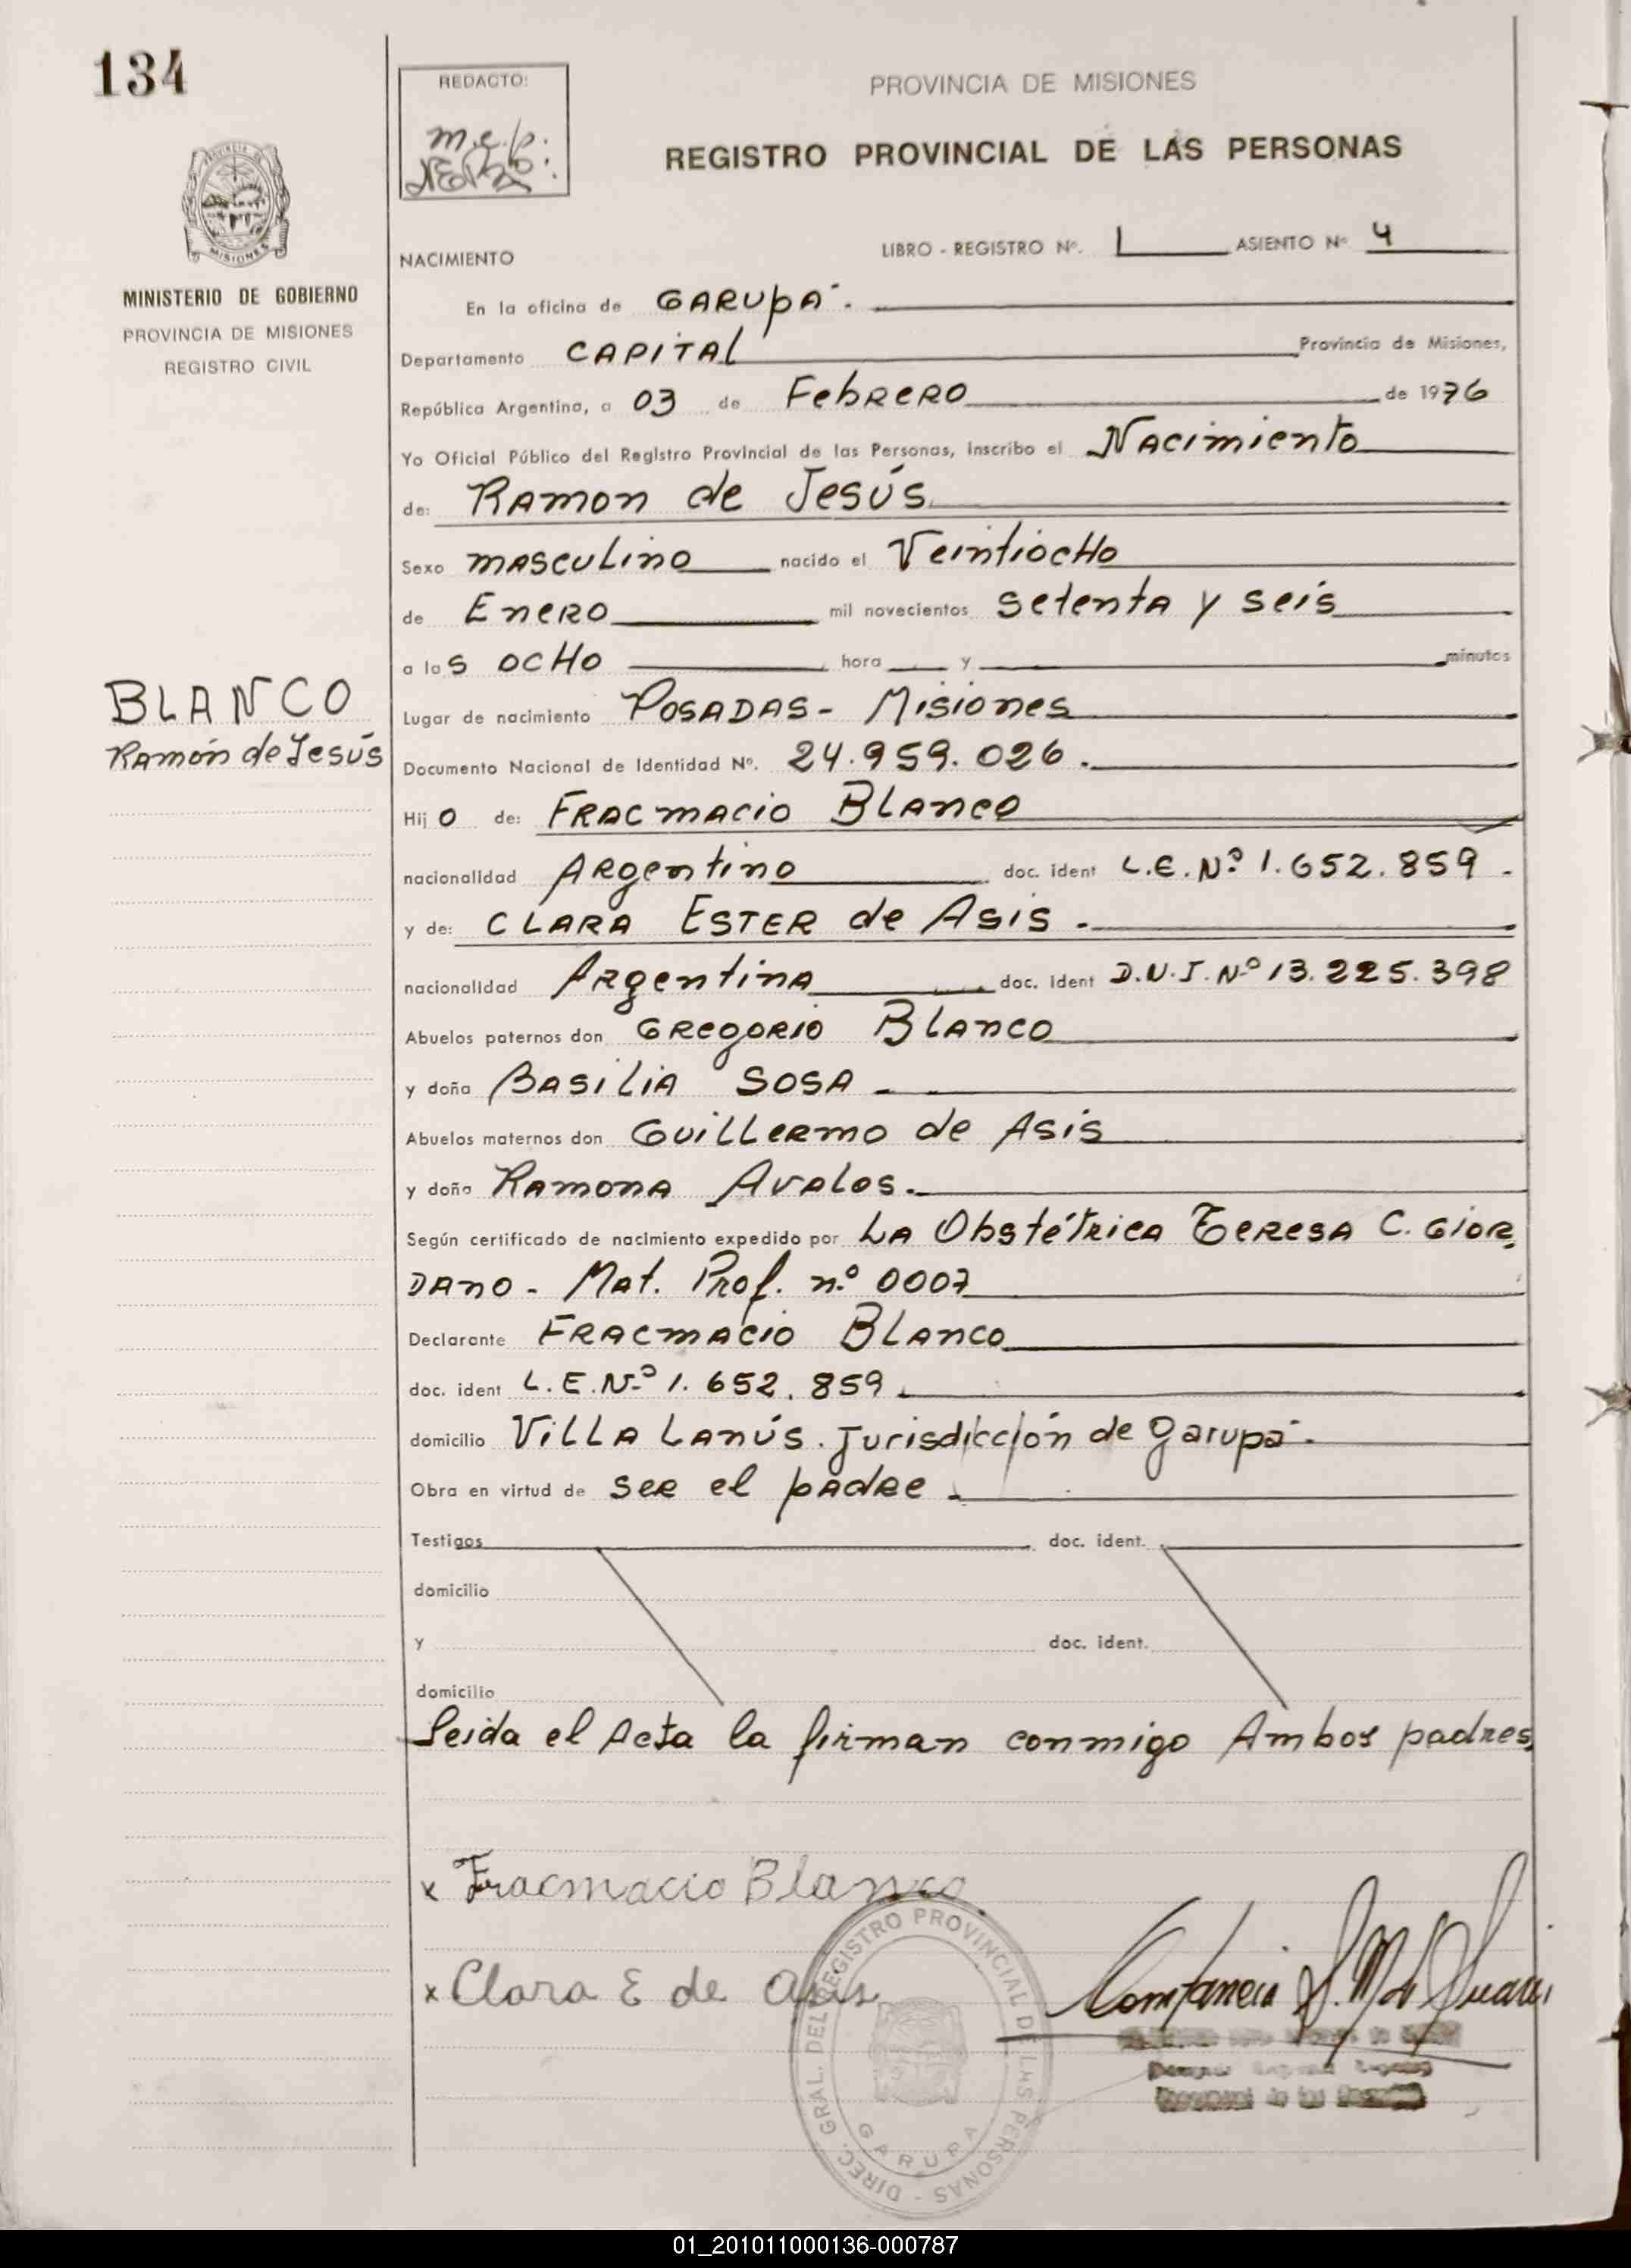 134
REDACTO:
m.e.p.
PROVINCIA DE MISIONES
REGISTRO PROVINCIAL DE LAS PERSONAS
MISIONES
MINISTERIO DE GOBIERNO
PROVINCIA DE MISIONES
REGISTRO CIVIL
NACIMIENTO
LIBRO - REGISTRO Nº. 1 ASIENTO Nº 4
En la oficina de GARUPÁ.
Departamento CAPITAL Provincia de Misiones,
República Argentina, a 03 de Febrero de 1976
Yo Oficial Público del Registro Provincial de las Personas, inscribo el Nacimiento
de: Ramon de Jesús
Sexo masculino nacido el Veintiocho
de Enero mil novecientos setenta y seis
a las ocho hora y minutos
BLANCO
Ramón de Jesús
Lugar de nacimiento Posadas - Misiones
Documento Nacional de Identidad Nº. 24.959.026.
Hijo de: Fracmacio Blanco
nacionalidad Argentino doc. ident L.E.Nº 1.652.859.
y de: Clara Ester de Asis.
nacionalidad Argentina doc. ident D.N.I.Nº 13.225.398
Abuelos paternos don Gregorio Blanco
y doña Basilia Sosa
Abuelos maternos don Guillermo de Asis
y doña Ramona Avalos.
Según certificado de nacimiento expedido por La Obstétrica Teresa C. Gior
dano - Mat. Prof. nº 0007
Declarante Fracmacio Blanco
doc. ident L.E.Nº 1.652.859
domicilio Villa Lanús. Jurisdicción de Garupá.
Obra en virtud de ser el padre
Testigos doc. ident.
domicilio
y doc. ident.
domicilio
Leida el Acta la firman conmigo Ambos padres
x Fracmacio Blanco
x Clara E de Asis
DIREC. GRAL. DEL REGISTRO PROVINCIAL DE LAS PERSONAS - GARUPA
01_201011000136-000787